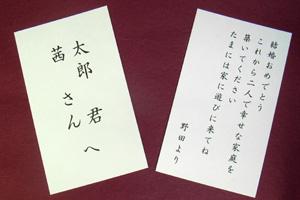 太郎君へ
茜さん
結婚おめでとう
これから二人で幸せな家庭を
築いてください
たまには家に遊びに来てね
野田より